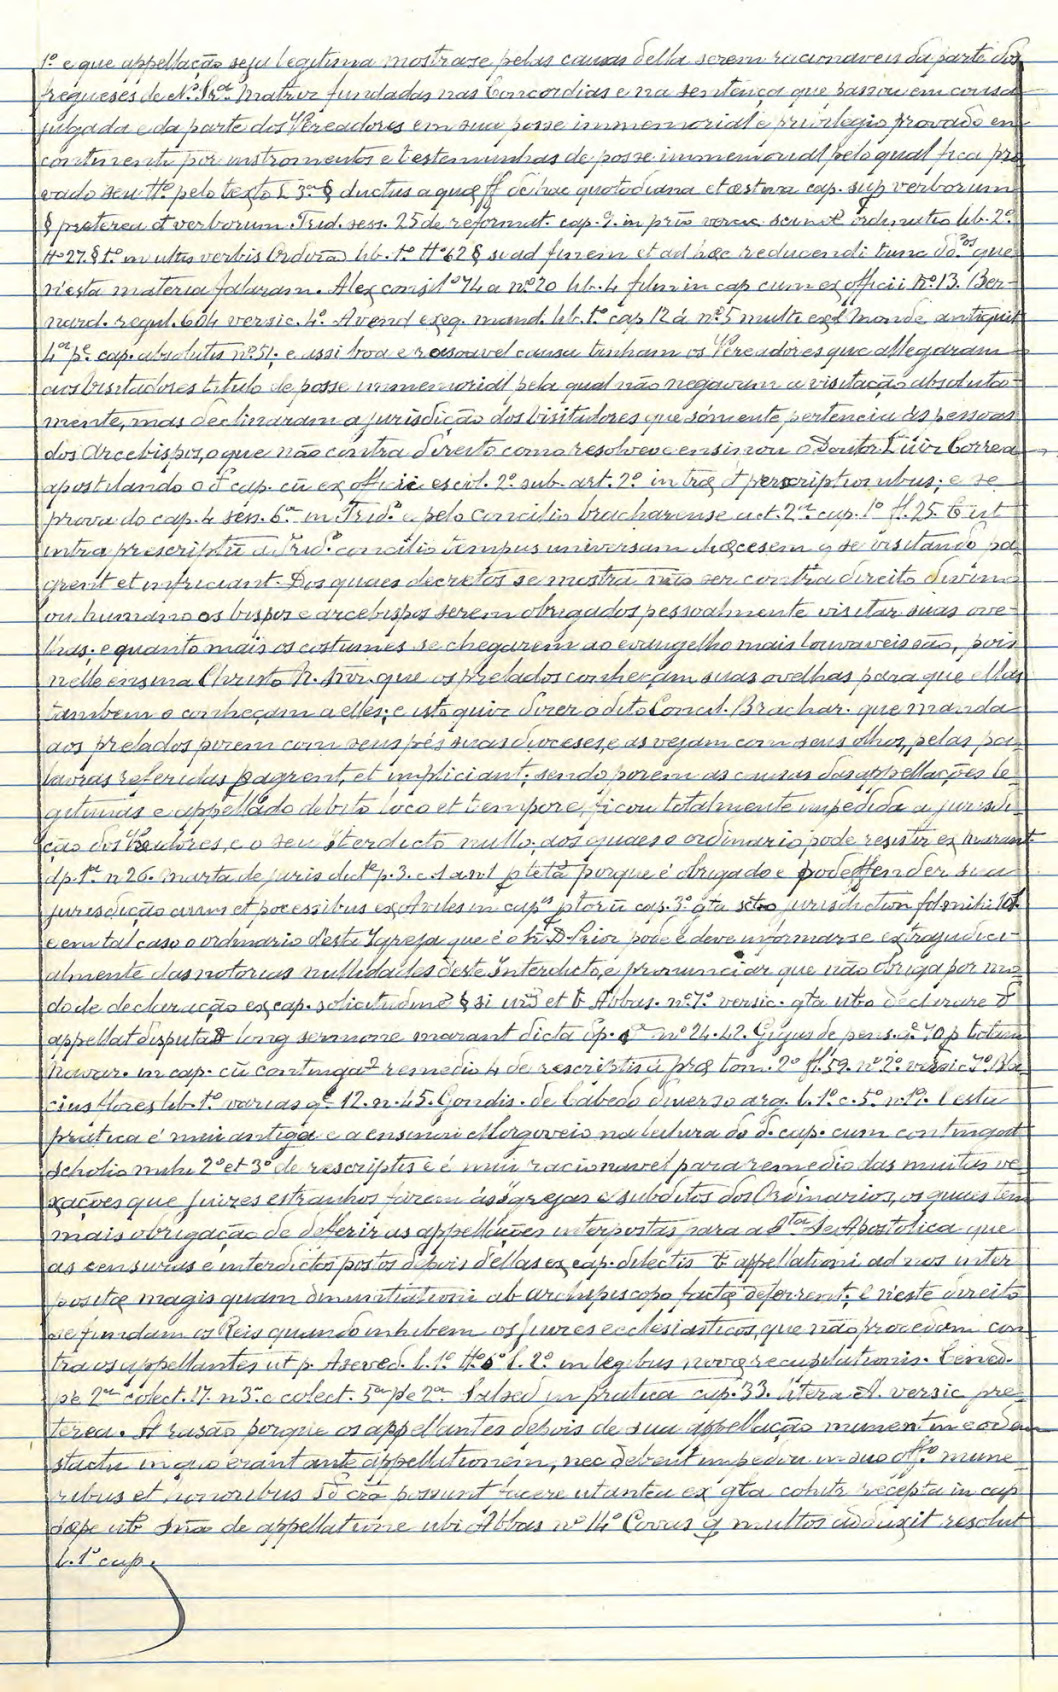 1º e que appellação seja legitima mostrase pelas causas della serem racionaveis da parte dos
fregueses de N. Srª. Matriz fundadas nas Concordias e na sentença que passou em cousa
julgada e da parte dos Vereadores em sua posse immemorial e privilegio provado en
continenti por instromentos e testeminhas de posse immemorial pelo qual fica pro
vado seu ttº. pelo texto L 3ª § ductus aquæ ff de hac quotodiana et æstiva cap. sup verborum
§ preterea et verborum. Trid. sess. 25 de reformat. cap. 9. in verc. lib. 2º
ttº 27. § 1º multis verbis lib. 1º ttº 62 § si ad finem et ad hæc reducendi tunc que
n'esta materia falaram. Alex consil º 74 a nº 20 lib. 4 filmin cap cum ex officii nº 13. Ber-
nard. regul. 604 versic. 4º Avend exeq. mand. lib. 1º cap 12 á nº 5 multi antiquit
4ª pe. cap. absolutis nº 51; e assi boa e rasoavel causa tinham os Vereadores que allegaram
aos Visitadores titulo de posse immemorial pela qual não negavam a visitação absoluta-
mente, mas declinaram a jurisdição dos visitadores que sómente pertencia ás pessoas
dos Arcebispos, o que não contra direito como resolveo e ensinou o Doutor Luiz Correa
apostilando o d. cap. cũ ex officii escol. 2º sub. art. 2º prescriptionibus; e se
prova do cap. 4 sess. 6ª in Trid.º e pelo Concilio bracharense act. 2ª cap. 1º fl. 25 ut
intra prescriptũ a Trid.º concilio tempus universam diœcesem visitando pa-
grent et inspiciant. Dos quaes decretos se mostra não ser contra direito divino
ou humano os bispos e arcebispos serem obrigados pessoalmente visitar suas ove-
lhas; e quanto mais os costumes se chegarem ao evangelho mais louvaveis são, pois
nelle ensina Christo N. Snr. que os prelados conheçam suas ovelhas para que ellas
tambem o conheçam a elles; e isto quiz dizer o dito Concil. Brachar. que manda
aos prelados pizem com seus pés suas dioceses, e as vejam com seus olhos, pelas pa-
lavras referidas pagrent, et inspiciant; sendo porem as causas das appellações le
gitimas e appellado debito loco et tempore, ficou totalmente impedida a jurisdi-
ção dos Vizitadores, e o seu Iterdicto nullo, aos quaes o ordinario pode resistir ex marant
dp. 1ª n 26. Marta de juris dictº p. 3. c. 1 a n 1 porque é obrigado e pode offender sua
jurisdição cap. 3º jurisdiction
e em tal caso o ordinario d'esta Igreja que é o D. Prior pode e deve informarse extrajudici-
almente das notorias nullidades deste Interdicto, e pronunciar que não obriga por mo
do de declaração ex cap. solicitudinẽ § si et Abbas. nº 7º versic. declarare
appellat disputat long sermone marant dicta dp. nº 24. 42. Gigas de pens. qº 70
Navar. in cap. cũ contingat remedio 4 de rescriptis tom. 2º fl. 59. nº 2º versic 7º Bla
cius flores lib. 1º varias qº 12. n. 45. Gondis. de Cabedo diverso arg. l. 1º c. 5º nº 1º. E esta
pratica é mui antiga e a ensinou Morgoveio na leitura do d. cap. cum contingat
scholio mihi 2º et 3º de rescriptis e é mui racionavel para remedio das muitas ve-
xações que Juizes estranhos fazem ás Igrejas e subditos dos Ordinarios, os quaes tem
mais obrigação de deferir as appellações interpostas para a Stª Sé Apostolica que
as censuras e interdictos postos depois dellas ex cap. dilectis appellationi ad nos inter
positæ magis quam denuntiationi ab archiepiscopo factæ deferrent; E n'este direito
se fundam os Reis quando inhibem os juizes ecclesiasticos, que não procedam con
tra os appellantes ut p. Azeved. l. 1º ttº 6º l. 2º in legibus novæ recusilationis. Cened.
pe 2ª colect. 17. n 3º e colect. 5ª pe 2ª Salsed in pratica cap. 33. litera A. versic pre-
terea. A rasão porque os appellantes depois de sua appellação manent in eodem
statu in quo erant ante appellationem, nec debent impediri in suo offº mune-
ribus et honoribus possunt facere ut antea ex recepta in cap
sæpe de appellatione ubi Abbas nº 14º Covas multos adduxit resolut
l. 1º cap.